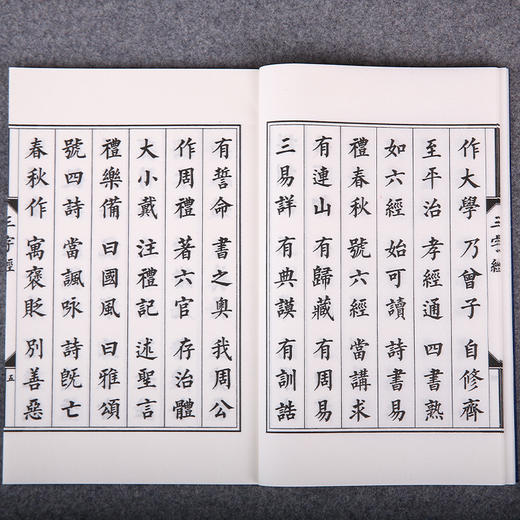 作大學 乃曾子 自修齊
至平治 孝經通 四書熟
如六經 始可讀 詩書易
禮春秋 號六經 當講求
有連山 有歸藏 有周易
三易詳 有典謨 有訓誥
有誓命 書之奧 我周公
作周禮 著六官 存治體
大小戴 注禮記 述聖言
禮樂備 曰國風 曰雅頌
號四詩 當諷咏 詩旣亡
春秋作 寓褒貶 別善惡
三字經
三字經
五